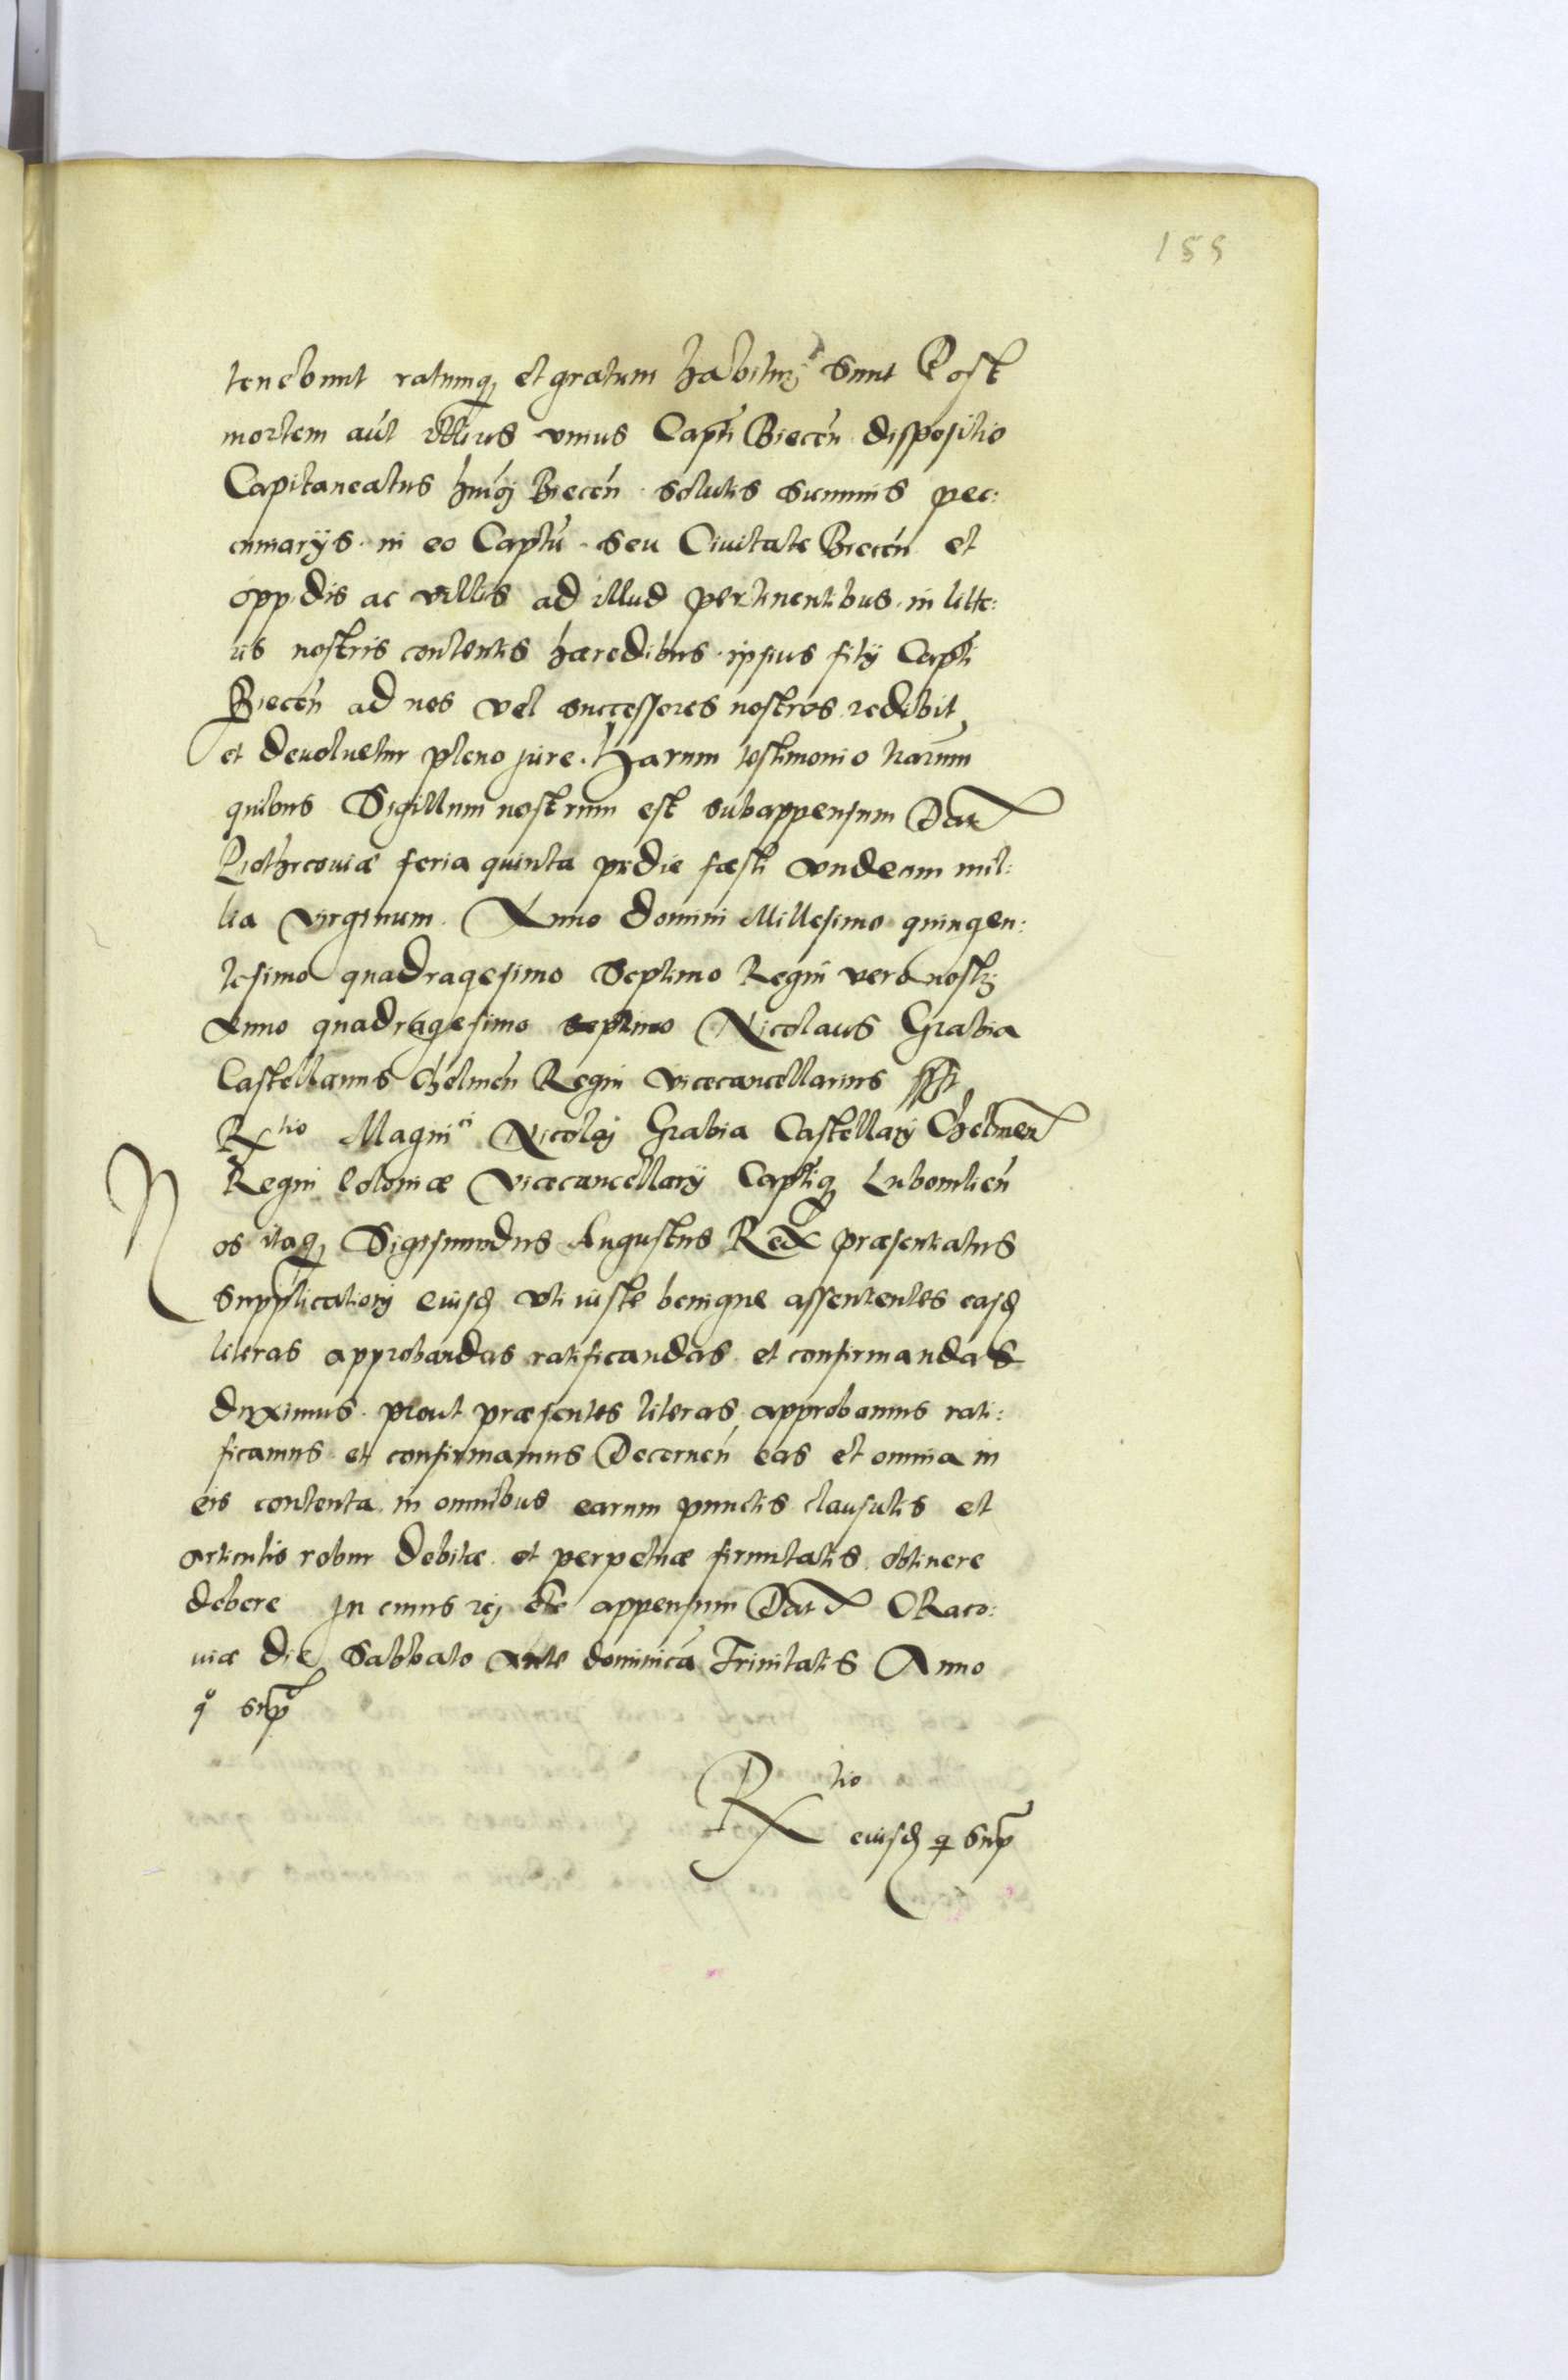 155
tenebunt ratumq₃ et gratum habiturj sunt Post
mortem aūt illius vnius Capti Biecen̄ dispositio
Capitaneatus hmōj Biecen̄ solutis summis pec:
cuniarijs in eo Captū seu Ciuitate Biecen̄ et
oppidis ac villis ad illud pertinentibus in litte:
ris nostris contentis hæredibus ipsius filij Capti
Biecen̄ ad nos vel successores nostros redibit
et deuoluetur pleno jure. Harum testimonio lrarum
quibus Sigillum nostrum est subappensum Dat
Piothrcouiæ feria quinta pridie fæsti vndecim mil:
lia virginum. Anno domini Millesimo quingen:
tesimo quadragesimo Septimo Regni vero nostrj
Anno quadragesimo septimo Nicolaus Grabia
Castellanus Chelmen̄ Regni vicecancellarius sst
Rx tio Magnici Nicolaj Grabia Castellanj Chelmen
Regni Poloniæ Vicecancellarij Captiq₃ Lubomlien̄
Nos itaq₃ Sigismundus Augustus Rex præsentatus
supplicationj eiusd uti iuste benigne assentientes easd
literas approbandas ratificandas et confirmandas
duximus prout præsentes literas approbamus rati:
ficamus et confirmamus Decernen̄ eas et omnia in
eis contenta in omnibus earum punctis clausulis et
articulis robur debitæ et perpetuæ firmitatis obtinere
debere In cuius rej etc appensum Dat CRaco:
uiæ die Sabbato Ante dominicā Trinitatis Anno
qo sup
Rx tio
eiusd q sup